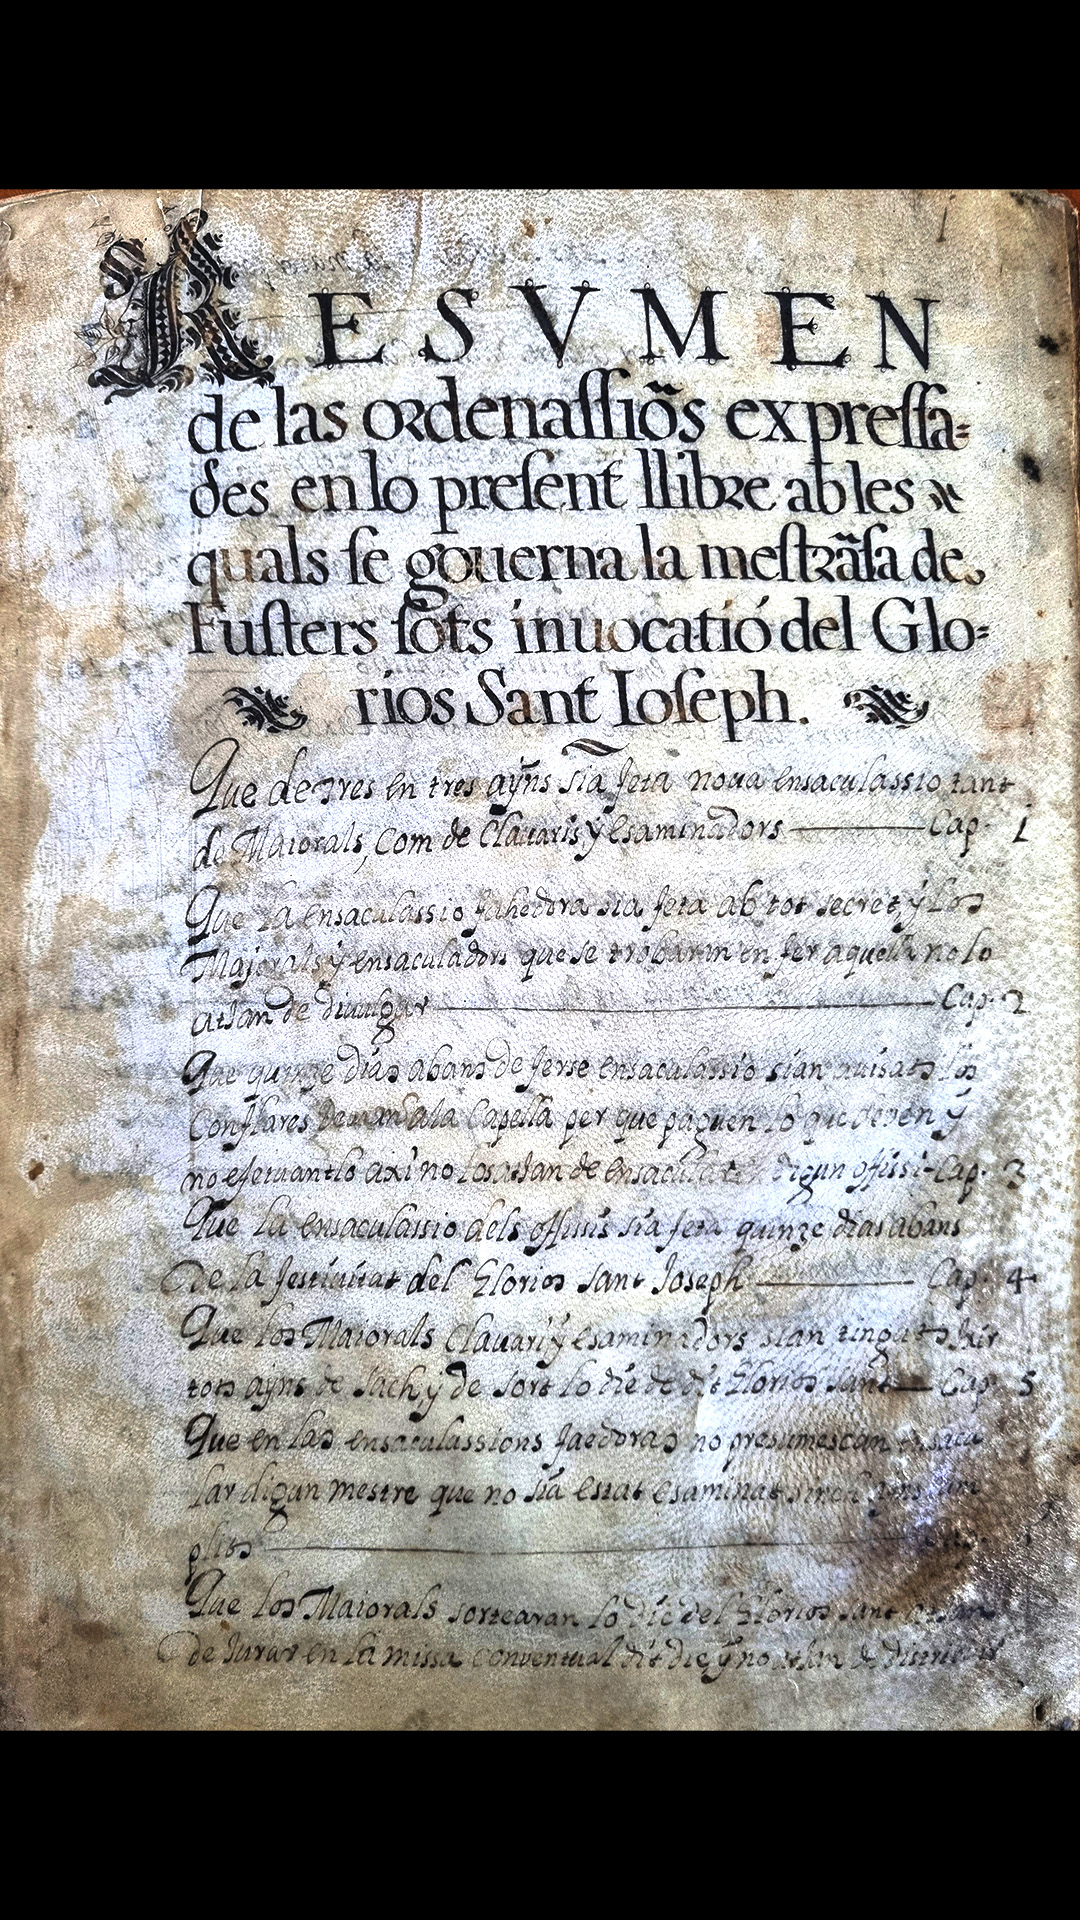 RESVMEN
de las ordenaſſiõs expreſſa=
des en lo preſent llibre ab les
quals ſe gouerna la meſtrãſa de
Fuſters ſots inuocatió del Glo=
rios Sant Ioſeph.
Que de tres en tres aỹns sia feta noua ensaculassio tant
de Maiorals, Com de Clauaris, y esaminadors Cap. 1
Que la ensaculassio fahedora sia feta ab tot secret, y los
Majorals y ensaculadors que se trobaran en fer aquella no lo
atjan de diuulgar Cap. 2
Que quinze dias abans de ferse ensaculassio sian auisats los
Confrares deuran a la Capella per que paguen lo que deren y
no efetuantlo axi no los atjan de ensacular digun offissi Cap. 3
Que la ensaculassio dels offisis sia feta quinze dias abans
de la festiuitat del Glorios sant Joseph Cap. 4
Que los Maiorals Clauari y esaminadors sian tinguts
tots aỹns de sach, y de sort lo die de dit Glorios sant Cap 5
Que en las ensaculassions faedoras no presumescan
lar digun mestre que no sia estat esaminat sinch
plits
Que los Maiorals sortearan lo die del Glorios sant atjan
de Jurar en la missa conventual dit die, y no atjan de